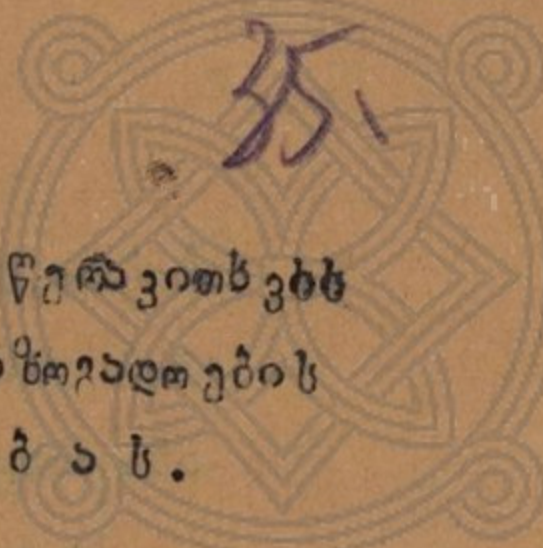 35.
წერა კითხვის
საზოგადოების
ბ ა ს .